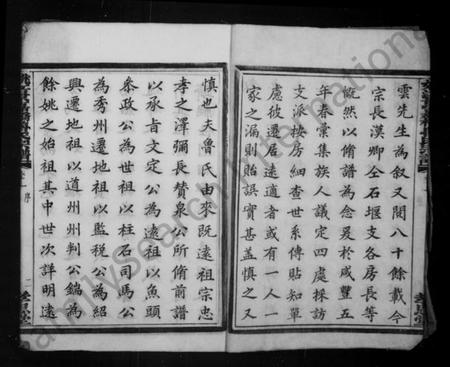 雲先生為叙又閱八十餘載今
宗長漢卿仝石堰支各房長等
慨然以脩譜為念爰於咸豐五
年春彙集族人議定四處採訪
文派按房細查世系傳貽知單
慮彼遷居遠適者或有一人一
家之漏則貽誤實甚蓋慎之又
慎也夫魯氏由來既遠祖宗忠
孝之澤彌長贊泉公所脩前譜
以承肯文定公為遠祖以魚頭
叅政公為世祖以柱石司馬公
為秀州遷地祖以監稅公為紹
興遷地祖以道州州判公鍴為
餘姚之始祖其中世次詳明遠
序
familysearch international